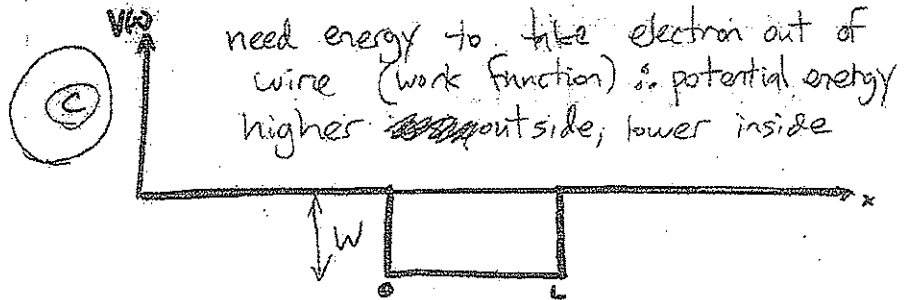 V(x)
need energy to take electron out of
C
wire (work function) ∴ potential energy
higher outside, lower inside
x
W
0
L